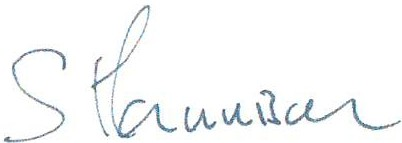 S Hannibal